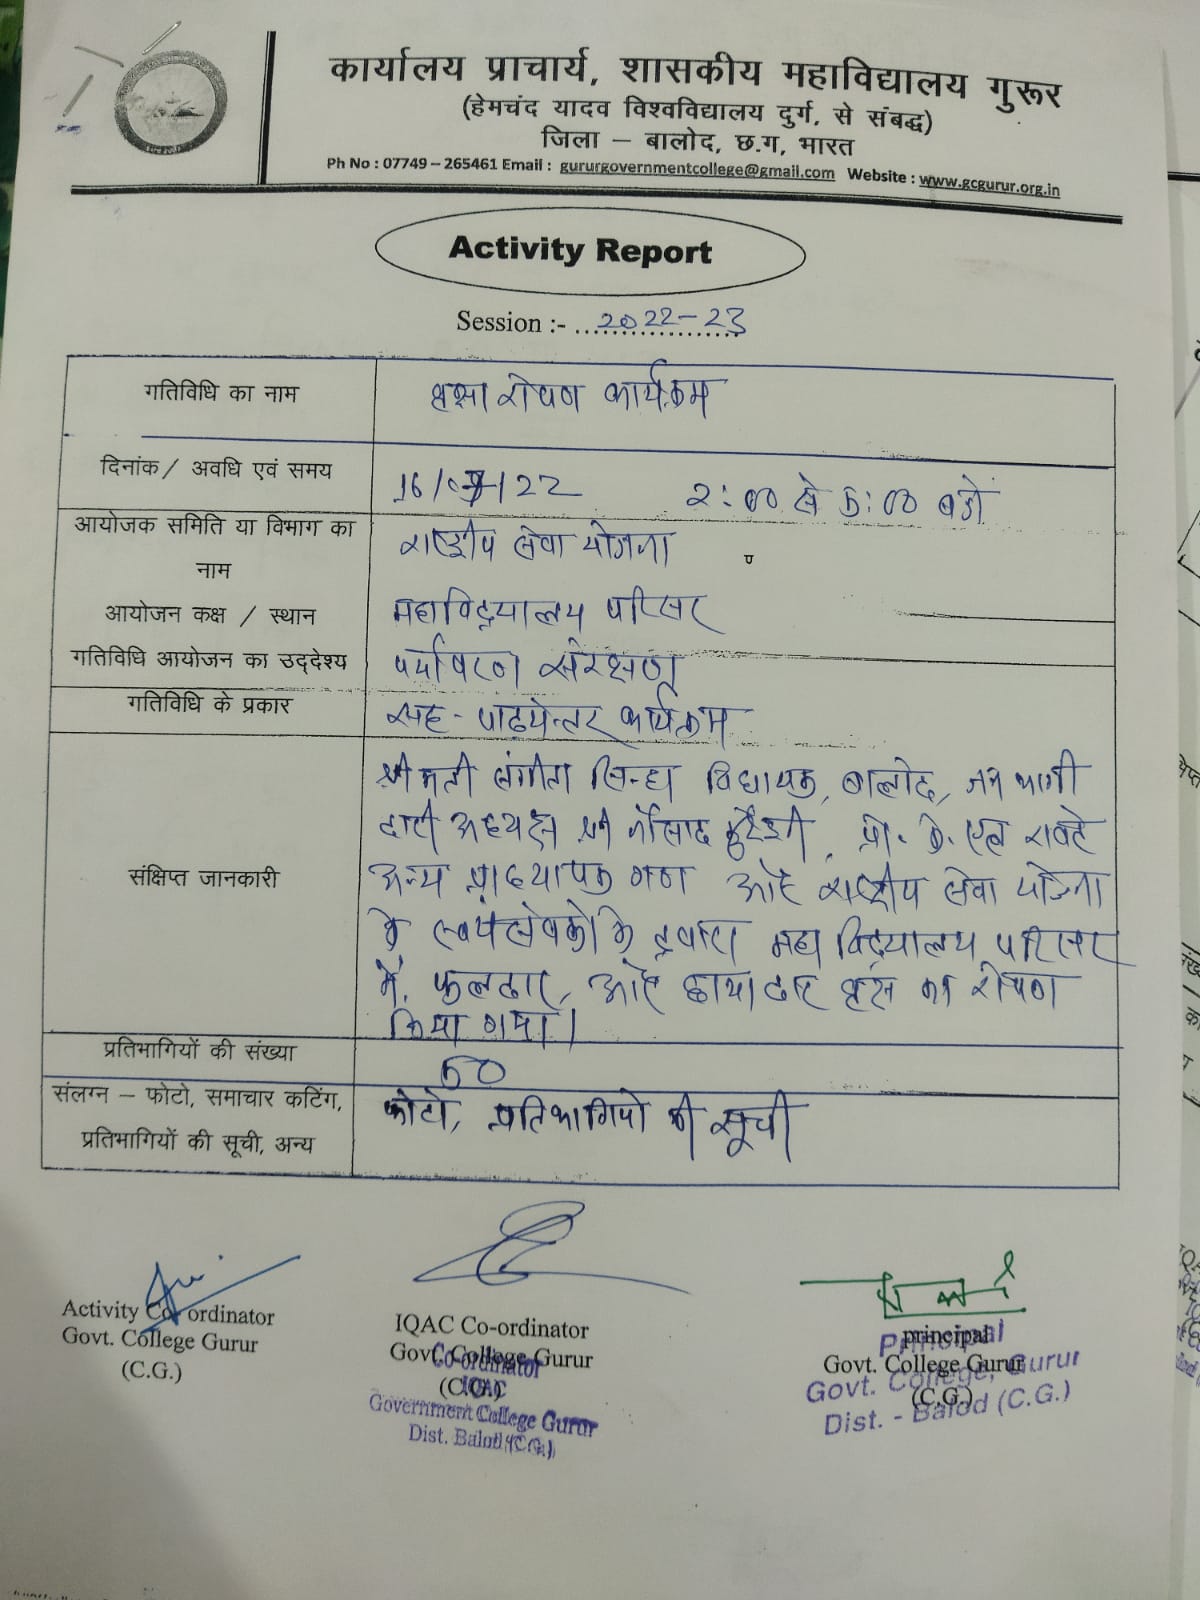 कार्यालय प्राचार्य, शासकीय महाविद्यालय गुरूर
(हेमचंद यादव विश्वविद्यालय दुर्ग, से संबद्ध)
जिला – बालोद, छ.ग, भारत
Ph No : 07749 – 265461 Email : gururgovernmentcollege@gmail.com Website : www.gcgurur.org.in
Activity Report
Session :- 2022-23
गतिविधि का नाम
रोपण कार्यक्रम
दिनांक/ अवधि एवं समय
16/07/22 2:00 से 5:00 बजे
आयोजक समिति या विभाग का
नाम
राष्ट्रीय सेवा योजना
आयोजन कक्ष / स्थान
महाविद्यालय परिसर
गतिविधि आयोजन का उद्देश्य
पर्यावरण संरक्षण
गतिविधि के प्रकार
सह-पाठ्येत्तर कार्यक्रम
संक्षिप्त जानकारी
श्रीमती संगीता सिन्हा विधायक, बालोद, जन भागी
दारी अध्यक्ष श्री कुरैशी, प्रो. के. एल रावटे
अन्य प्राध्यापक गण और राष्ट्रीय सेवा योजना
के स्वयंसेवको के द्वारा महाविद्यालय परिसर
में, फलदार, और छायादार का रोपण
किया गया।
प्रतिभागियों की संख्या
50
संलग्न – फोटो, समाचार कटिंग,
प्रतिभागियों की सूची, अन्य
फोटो, प्रतिभागियो की सूची
Activity Co-ordinator
Govt. College Gurur
(C.G.)
IQAC Co-ordinator
Govt. College Gurur
(C.G.)
Co-ordinator
IQAC
Government College Gurur
Dist. Balod (C.G.)
principal
Govt. College Gurur
(C.G.)
Principal
Govt. College, Gurur
Dist. - Balod (C.G.)